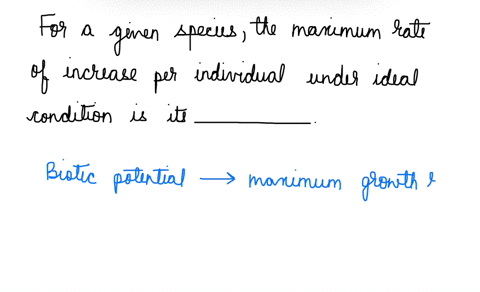 For a given species, the maximum rate
of increase per individual under ideal
condition is its ___________.
Biotic potential → maximum growth r